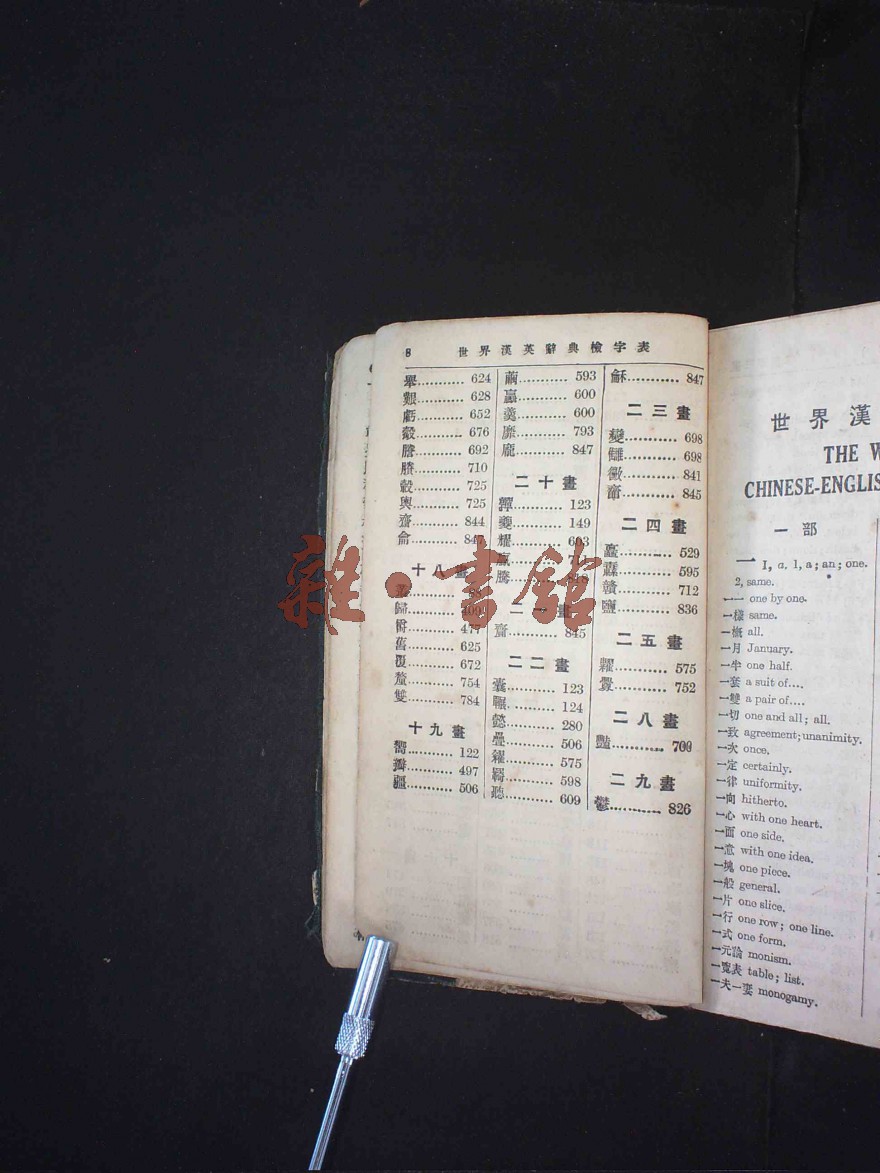 8 世界漢英辭典檢字表
舉............ 624
艱............ 628
虧............ 652
轂............ 676
謄............ 692
賸............ 710
轂............ 725
輿............ 725
齋............ 844
龠............ 84
十八畫
叢............ 88
歸............ 409
爵............ 477
舊............ 625
覆............ 672
釐............ 754
雙............ 784
十九畫
嚮............ 122
瓣............ 497
疆............ 506
繭............ 593
羸............ 600
羹............ 600
靡............ 793
龐............ 847
二十畫
............ 123
夔............ 149
耀............ 603
贏............
騰............ 818
二一畫
齎............ 845
二二畫
囊............ 123
囅............ 124
懿............ 280
疊............ 506
糴............ 575
羈............ 598
聽............ 609
龢............ 847
二三畫
變............ 698
讎............ 698
黴............ 841
............ 845
二四畫
矗............ 529
纛............ 595
贛............ 712
鹽............ 836
二五畫
糶............ 575
釁............ 752
二八畫
豔............ 700
二九畫
鬱............ 826
世界漢
THE W
CHINESE-ENGLIS
一部
一 1, a. 1, a; an; one.
2, same.
一一 one by one.
一樣 same.
一概 all.
一月 January.
一半 one half.
一套 a suit of....
一雙 a pair of....
一切 one and all; all.
一致 agreement; unanimity.
一次 once.
一定 certainly.
一律 uniformity.
一向 hitherto.
一心 with one heart.
一面 one side.
一意 with one idea.
一塊 one piece.
一般 general.
一片 one slice.
一行 one row; one line.
一式 one form.
一元論 monism.
一覽表 table; list.
一夫一妻 monogamy.
雜·書館